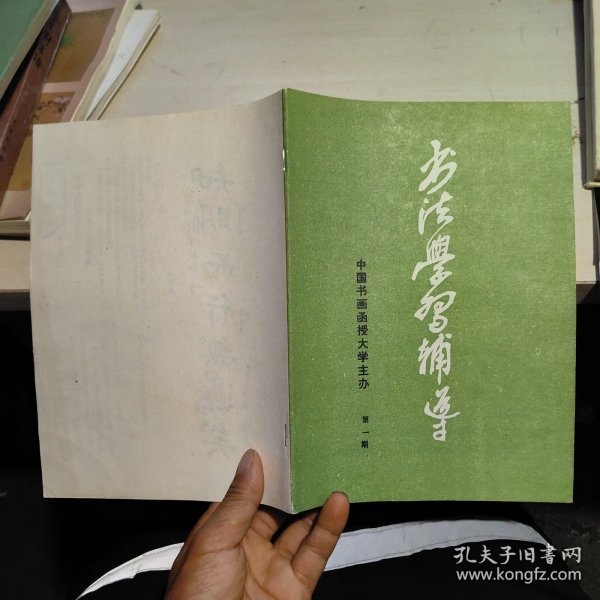 书法學習辅导
中国书画函授大学主办
第一期
孔夫子旧书网
www.kongfz.com